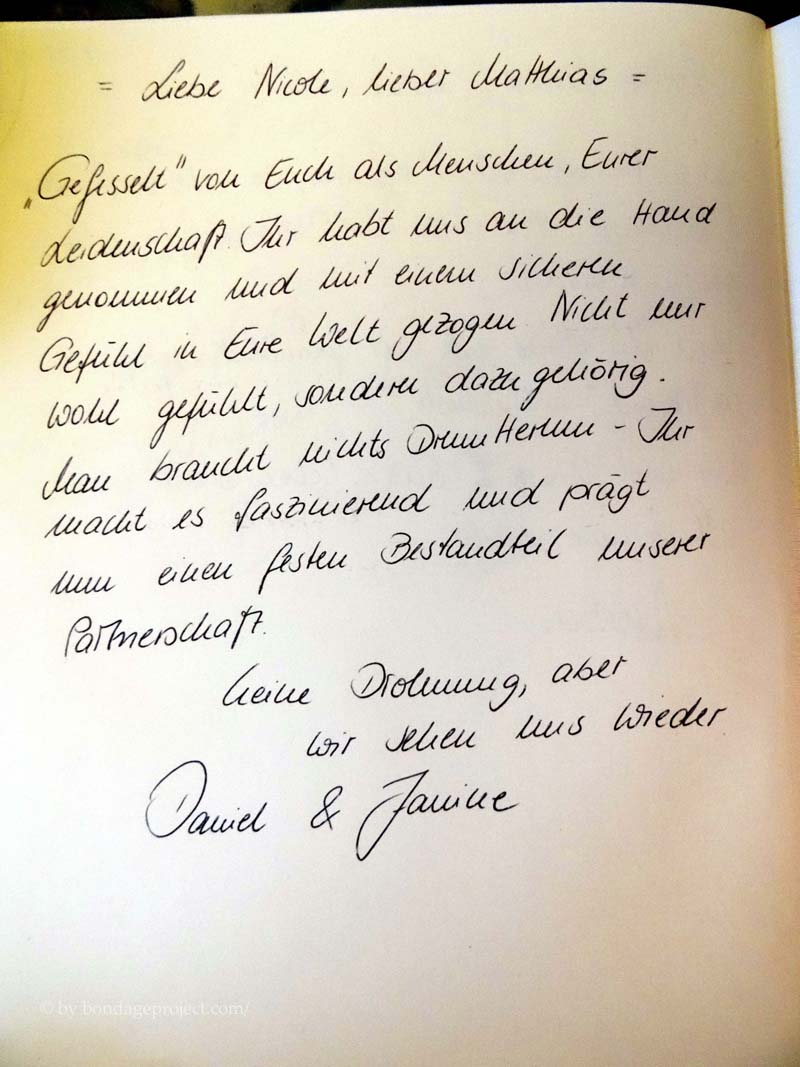 = Liebe Nicole, lieber Matthias =
„Gefesselt" von Euch als Menschen, Eurer
Leidenschaft. Ihr habt uns an die Hand
genommen und mit einem sicheren
Gefühl in Eure Welt gezogen. Nicht nur
wohl gefühlt, sondern dazu gehörig.
Man braucht nichts Drum Herum - Ihr
macht es faszinierend und prägt
nun einen festen Bestandteil unserer
Partnerschaft.
Keine Drohnung, aber
wir sehen uns wieder
Daniel & Janine
© by bondageproject.com/